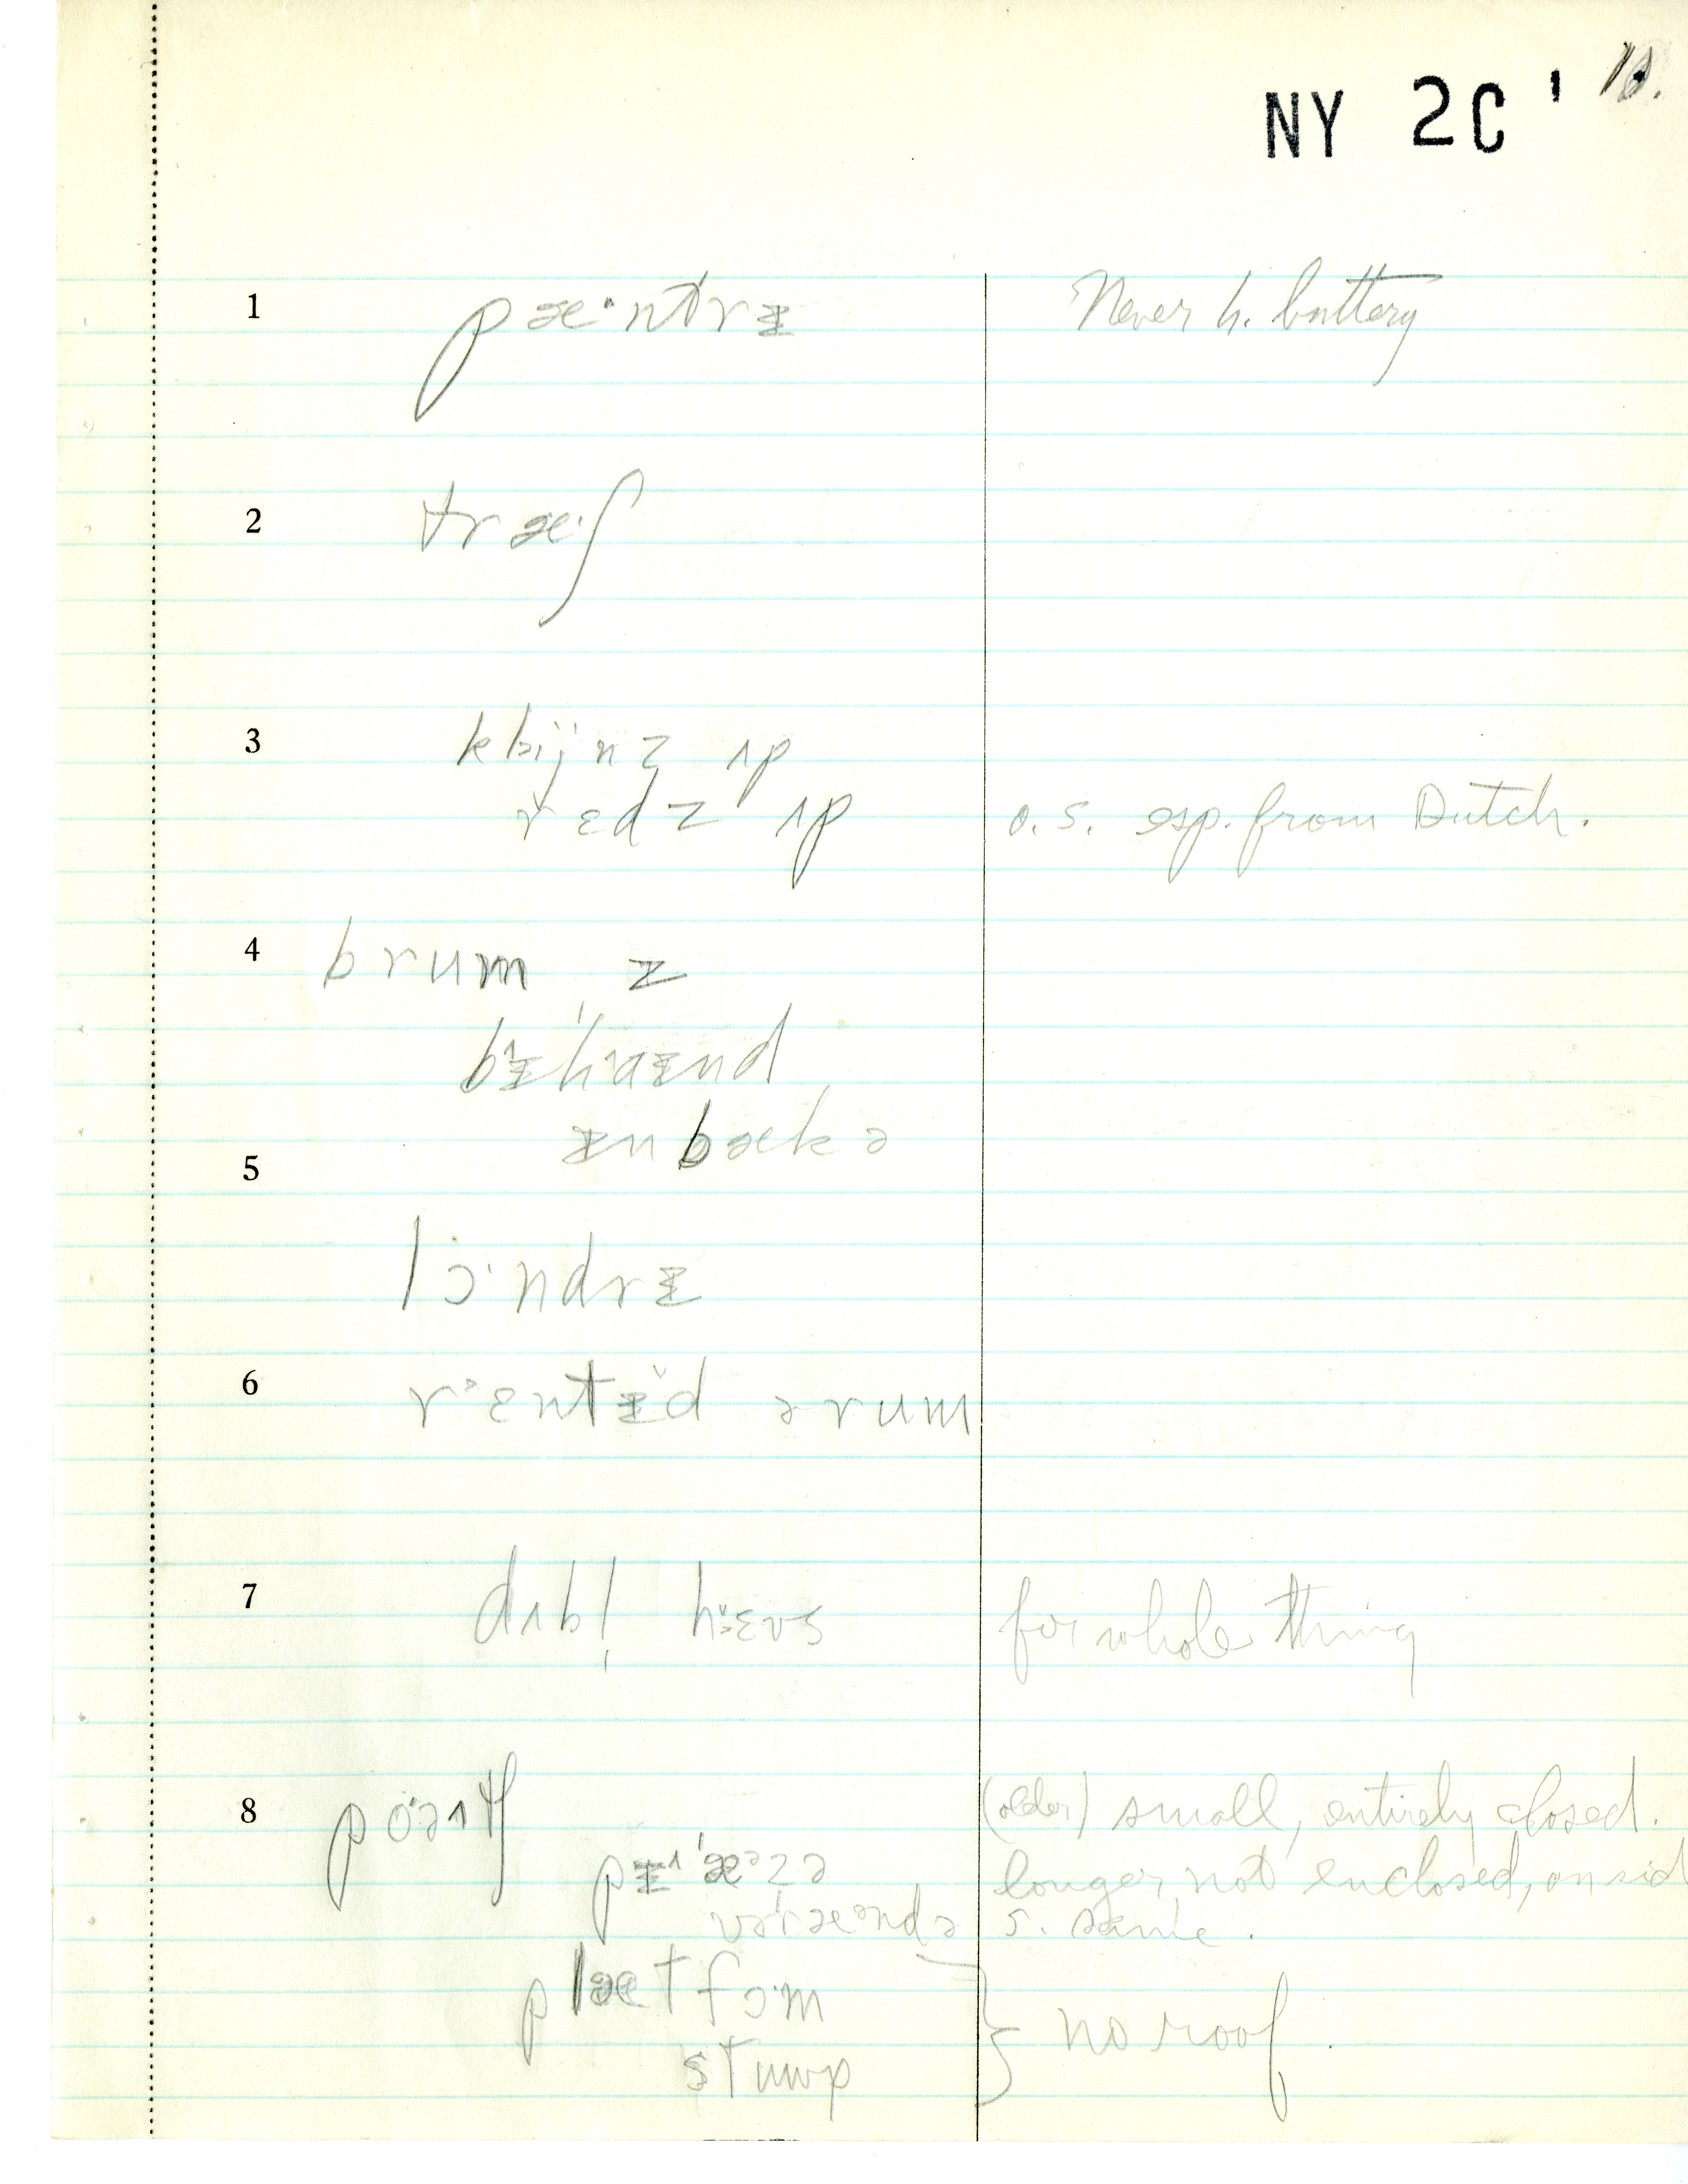 NY 2C'
1 pæ·ntrɪ Never h. buttery
2 træ·ʃ
3 klɪjnz ʌp
rɛdz ʌp o. s. esp. from Dutch.
4 brum z
bɪ'haɪnd
ɪn bæk ə
5
lɔ·ndrɪ
6 rɛntɪd ə rum
7 dʌbl̩ hɛʊs for whole thing
8 pɔəʌtʃ (older) small, entirely closed.
pɪ'æzə longer, not enclosed, on sid
və'rændə s. same.
plætfɔ·m
} no roof.
stuup